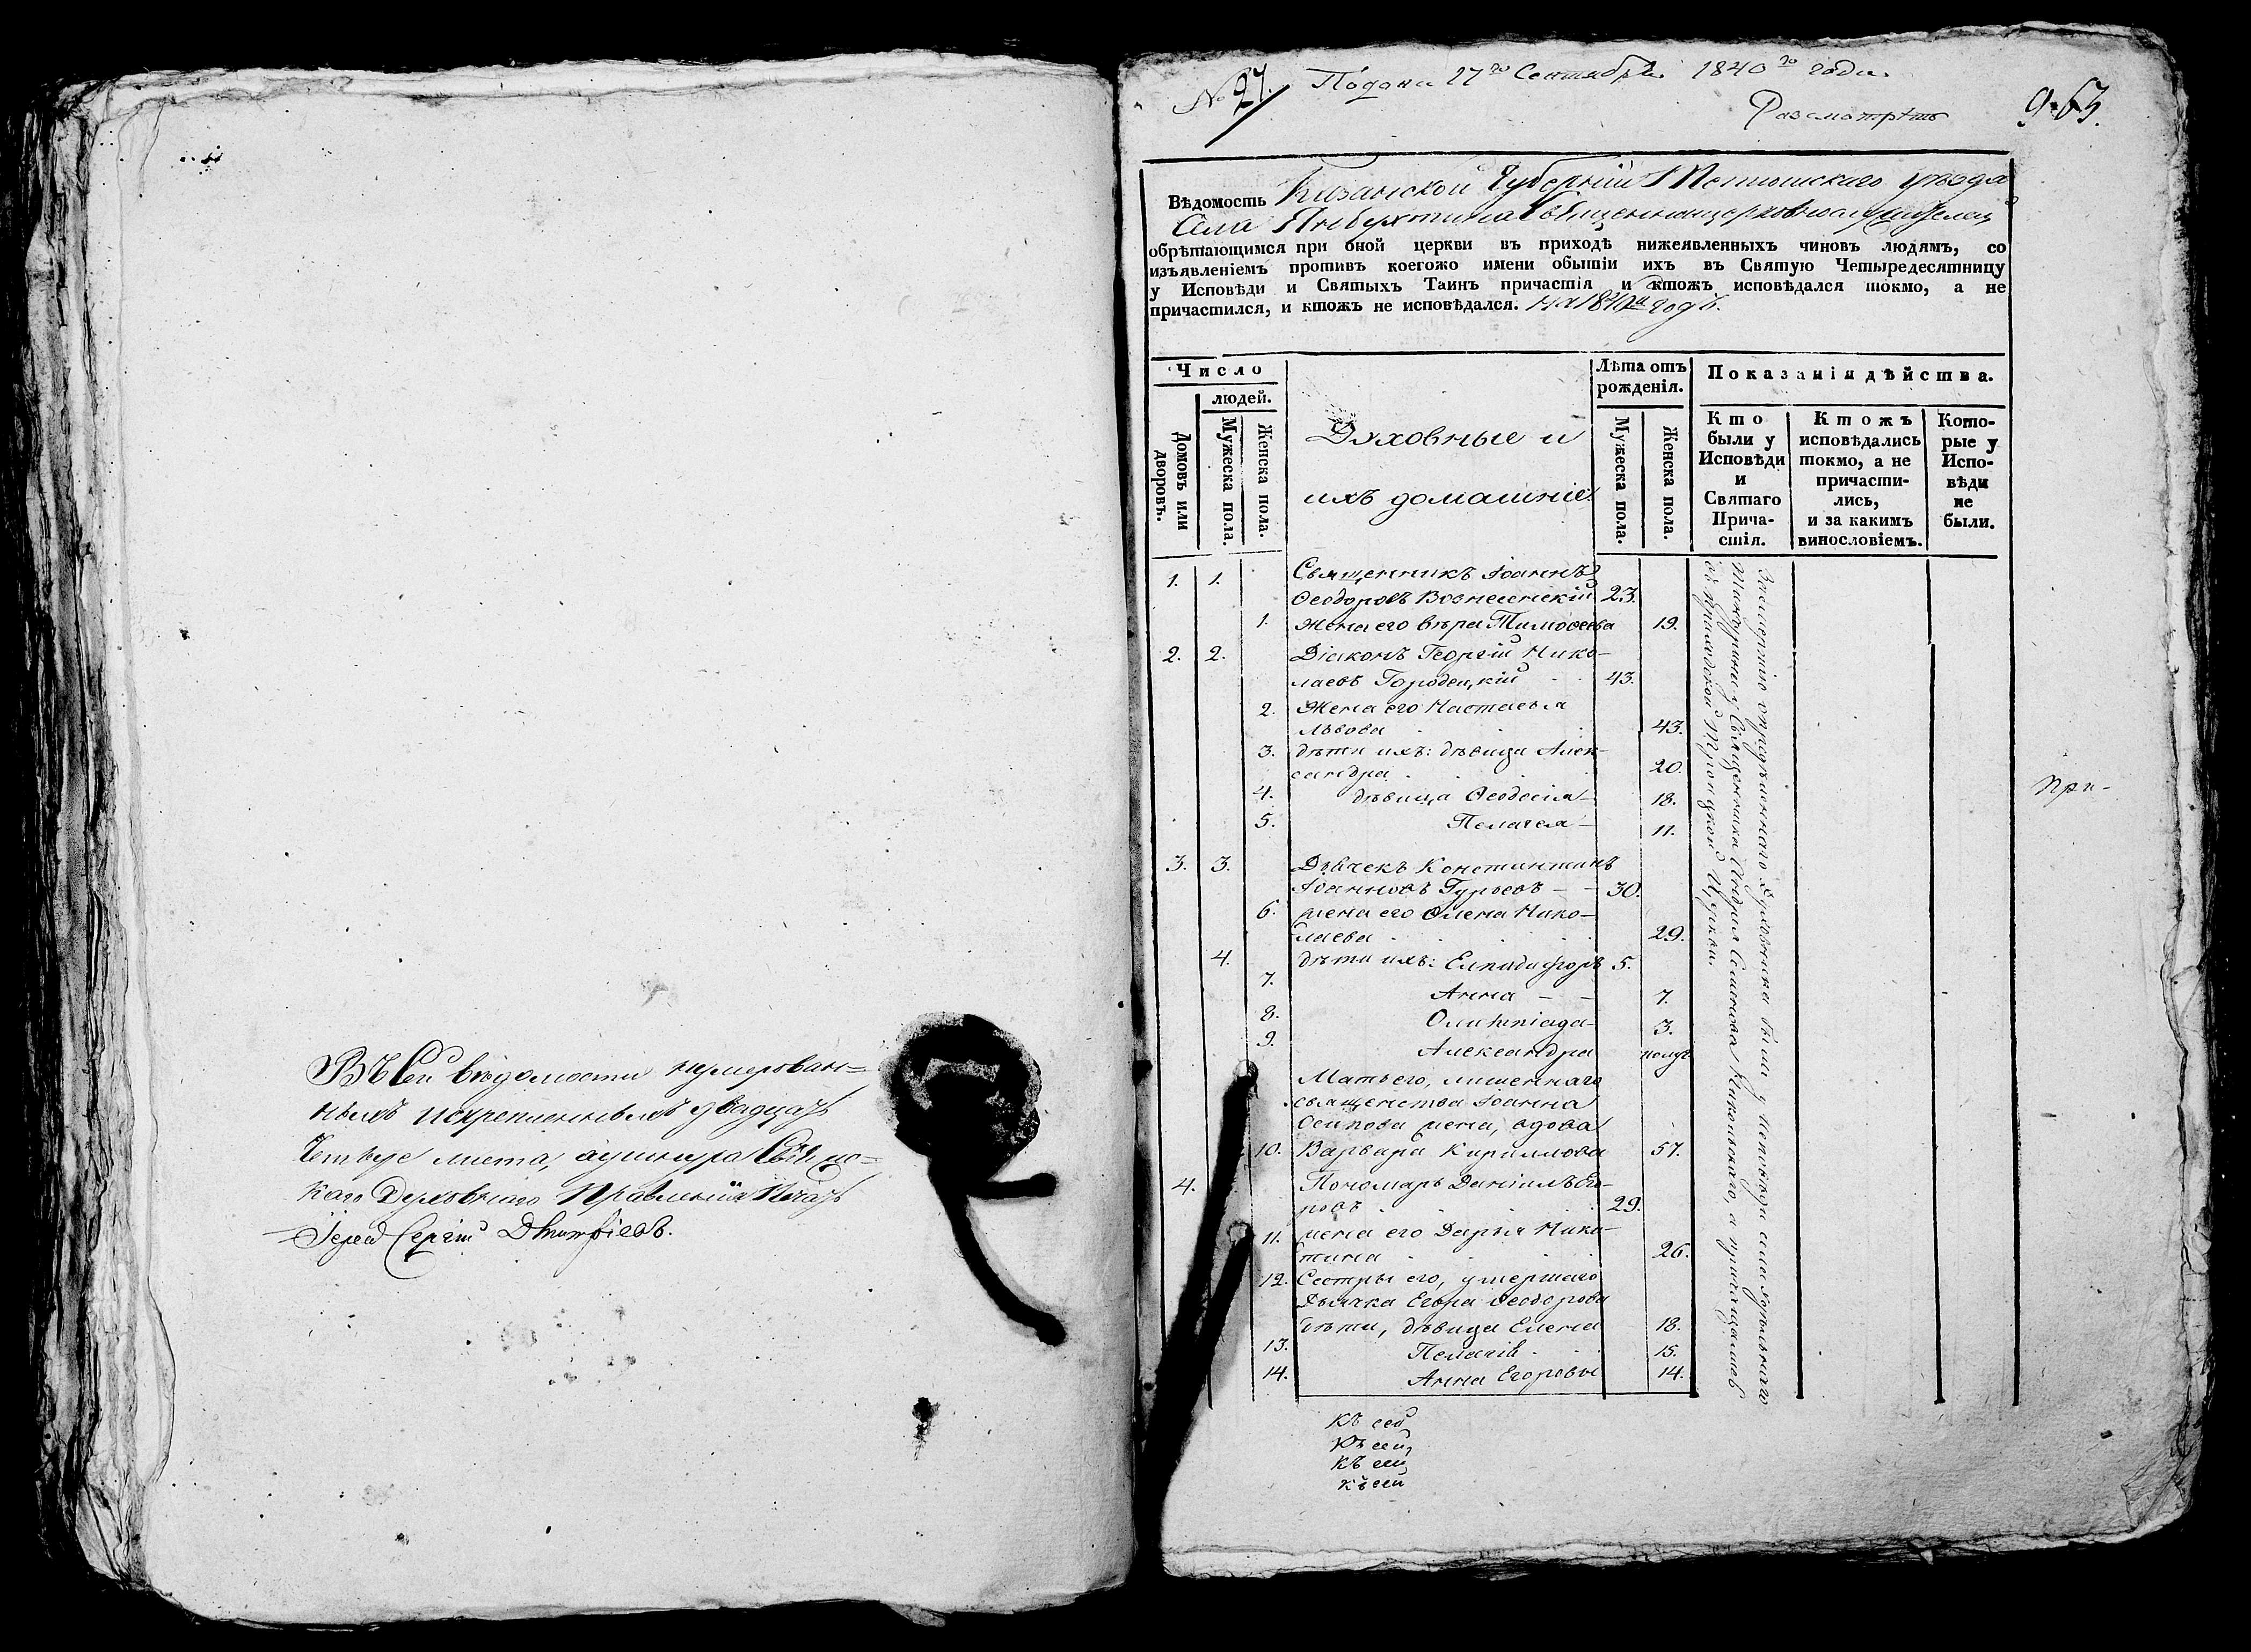 Въ сей вѣдомости нумерован=
ныхъ
двадцать
Четыре листа,
каго Духовнаго Правленія
Іерей Сергій
№ 27. Подана 27го Сентября 1840го года.
Разсмотрѣть
963.
Вѣдомость Казанской Губерніи Тетюшскаго уѣзда
Села
обрѣтающимся при оной церкви въ приходѣ нижеявленныхъ чиновъ людямъ, со
изъявленіемъ противъ коегожо имени обытіи ихъ въ Святую Четыредесятницу
у Исповѣди и Святыхъ Таинъ причастія и ктожъ исповѣдался токмо, а не
причастился, и ктожъ не исповѣдался. На 1840й годъ.
Число
людей.
Домовъ или дворовъ.
Мужеска пола.
Женска пола.
Духовные и
ихъ домашніе.
Лѣта отъ
рожденія.
Мужеска пола.
Женска пола.
Показанія дѣйства.
Кто
были у
Исповѣди
и
Святаго
Прича-
стія.
Ктожъ
исповѣдались
токмо, а не
причасти-
лись,
и за какимъ
винословіемъ.
Кото-
рые у
Испо-
вѣди
не
были.
1. 1. Священникъ Іоаннъ
Ѳеодоровъ Вознесенскій 23.
1. Жена его Вѣра Тимоѳеева 19.
2. 2. Діаконъ Георгій Нико-
лаевъ Городецкій 43.
2. Жена его Настасья
Львова 43.
3. дѣти ихъ: дѣвица Алек-
сандра 20.
4. дѣвица Ѳеодосія 18.
5. Пелагея 11.
3. 3. Дьячекъ Константинъ
Іоанновъ Гурьевъ 30.
6. жена его Олена Нико-
лаева 29.
4. дѣти ихъ: Елпидифоръ 5.
7. Анна 7.
8. Олимпіада 3.
9. Александра полуг
Мать его, лишеннаго
священства Іоанна
Осипова жена, вдова
10. Варвара Кириллова 57.
4. Пономарь Даніилъ Его-
ровъ 29.
11. жена его Дарья Ники-
тина 26.
12. Сестры его, умершаго
Дьячка Егора Ѳеодорова
дѣти, дѣвица Елена 18.
13. Пелагія 15.
14. Анна Егоровы 14.
были у Исповѣди села
у Священника Андрея
въ приходской Троицкой Церкви.
При-
Къ сей
Къ сей
Къ сей
Къ сей